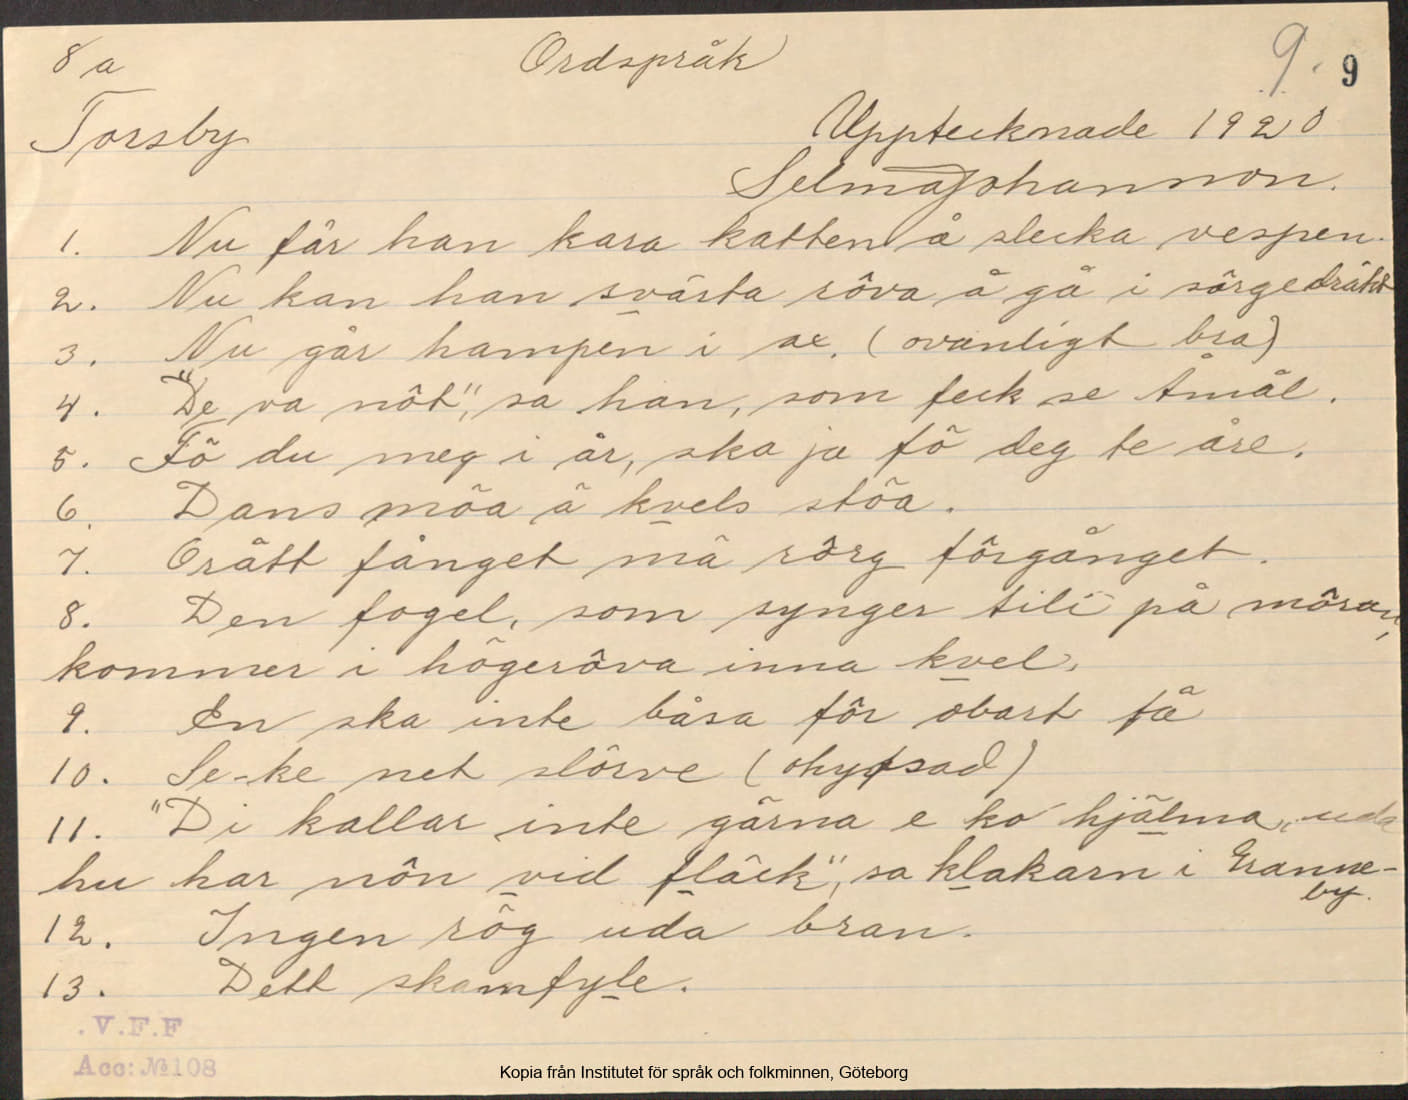 8 a Ordspråk 9. 9
Torsby Upptecknade 1920
Selma Johannson.
1. Nu får han kara katten å slecka vespen.
2. Nu kan han svärta rôva å gå i sörgedräkt
3. Nu går hampen i ax. (ovanligt bra)
4. "De va nôt", sa han, som feck se Åmål.
5. Fö du meg i år, ska ja fö deg te åre.
6. Dans möa å kvels stöa.
7. Orätt fånget må sörg förgånget.
8. Den fogel, som synger tili på môran,
kommer i högerôva inna kvel.
9. En ska inte båsa för obart få
10. Se-ke net slörve (ohyfsad)
11. "Di kallar inte gärna e ko hjälma, uda
hu har nôn vid fläck", sa klakarn i Granne-
by.
12. Ingen rög uda bran.
13. Dett skamfyle.
. V.F.F
Acc: № 108
Kopia från Institutet för språk och folkminnen, Göteborg